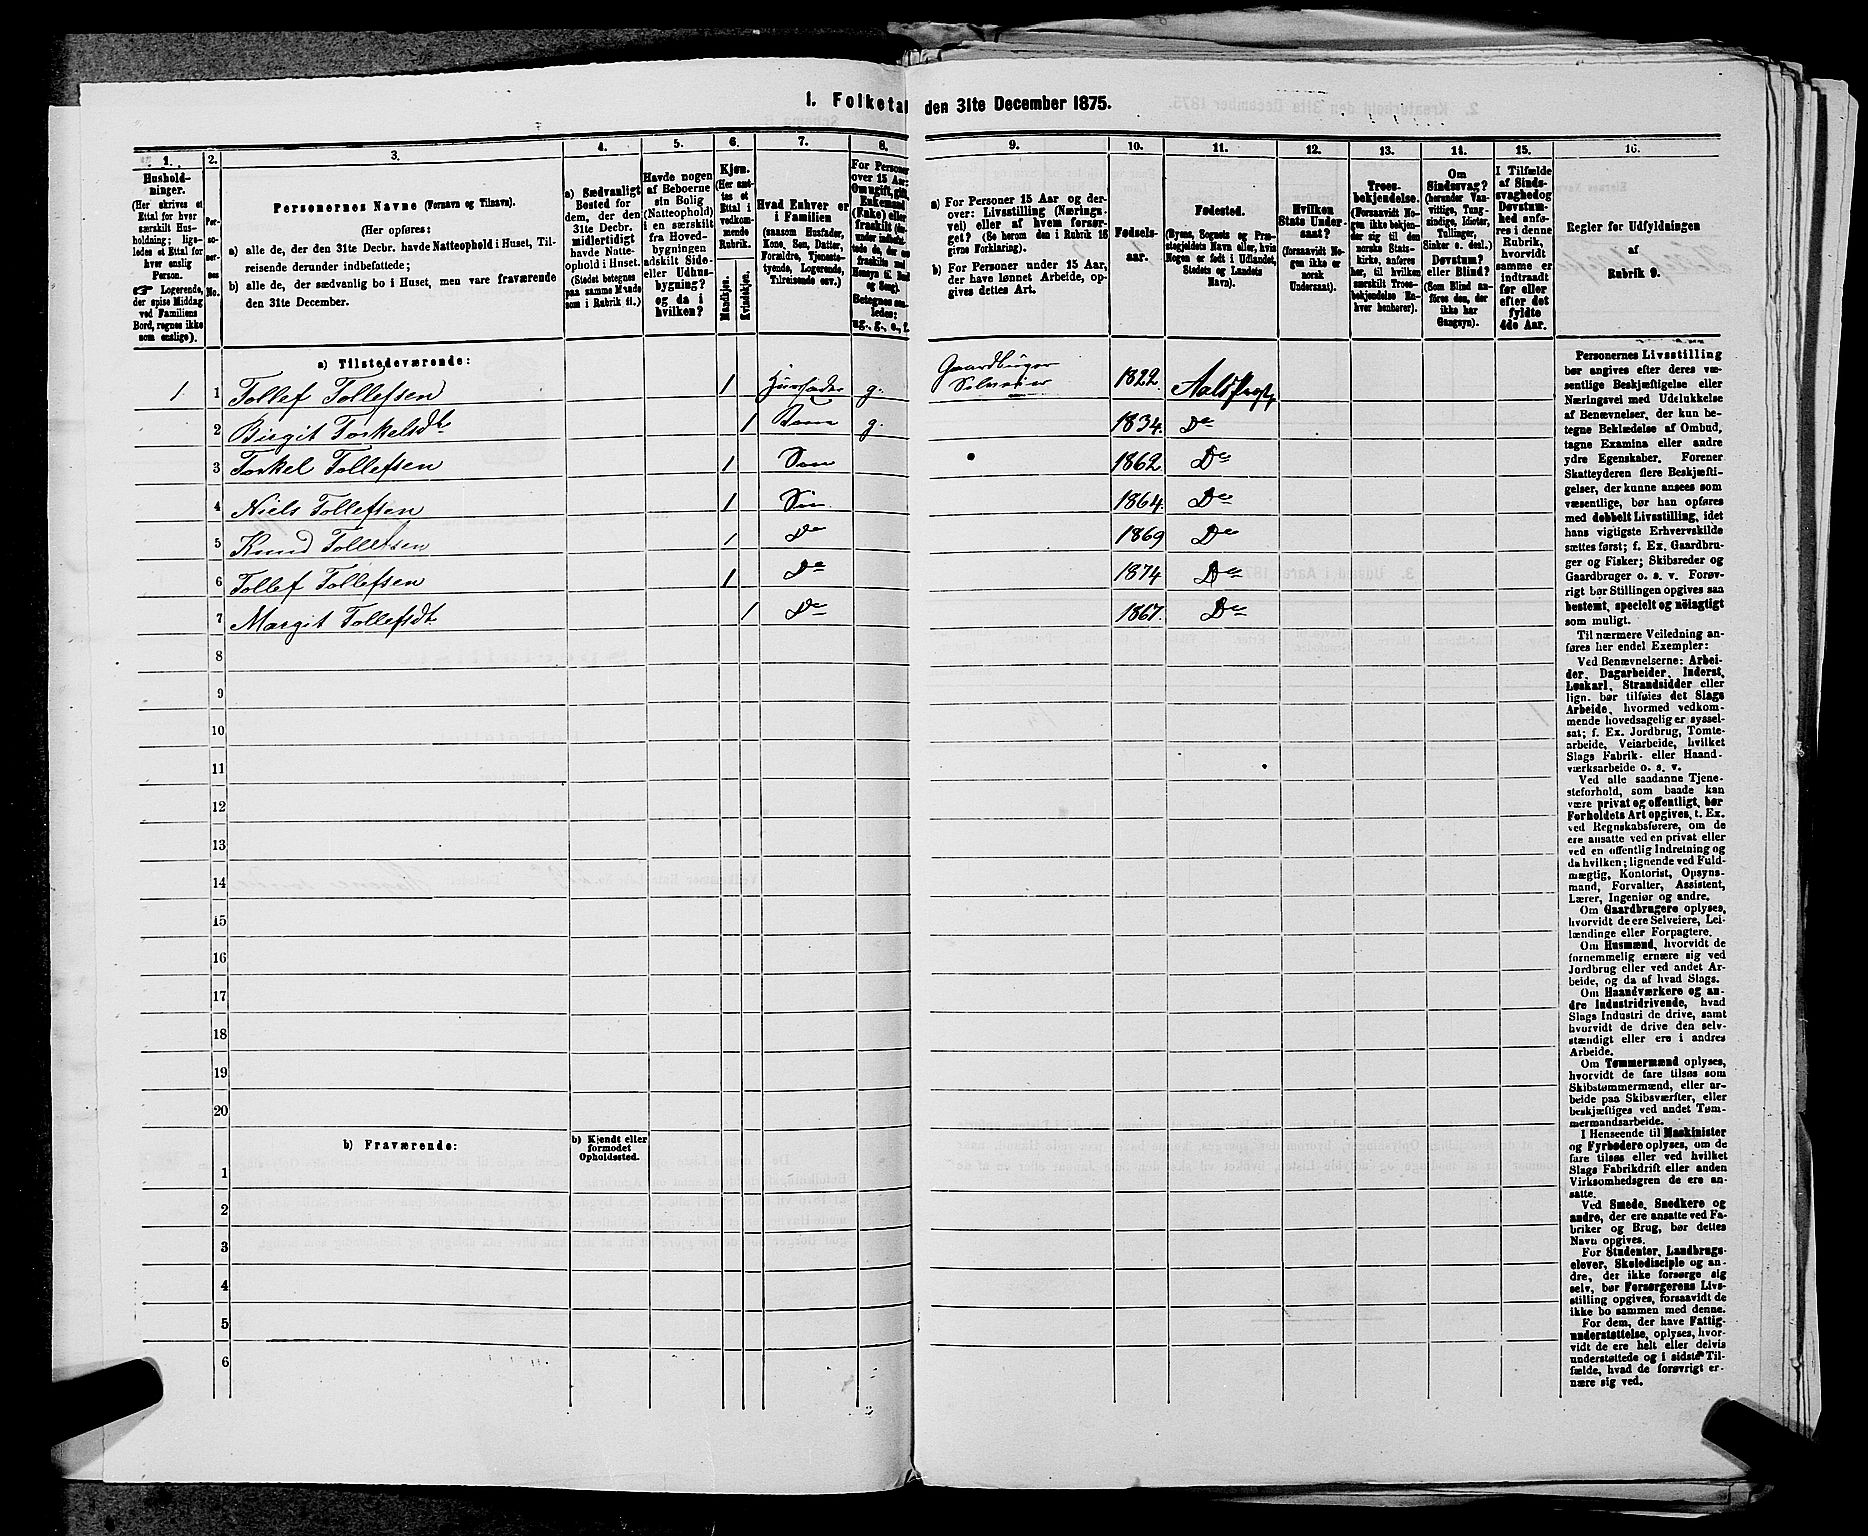 1. Folketal den 31te December 1875.
1.
Hushold-
ninger.
(Her skrives et
Ettal for hver
særskilt Hus-
holdning; lige-
ledes et Ettal for
hver enslig
Person.
Logerende,
der spise Middag
ved Familiens
Bord, regnes ikke
som enslige).
2.
Per-
so-
ner-
nes
No.
3.
Personernes Navne (Fornavn og Tilnavn).
(Her opføres:
a) alle de, der den 31te Decbr. havde Natteophold i Huset, Til-
reisende derunder indbefattede;
b) alle de, der sædvanlig bo i Huset, men vare fraværende
den 31te December.
4.
a) Sædvanligt
Bosted for
dem, der den
31te Decbr.
midlertidigt
havde Natte-
ophold i Huset.
(Stedet betegnes
paa samme Maade
som i Rubrik 11.)
5.
Havde nogen
af Beboerne
sin Bolig
(Natteophold)
i en særskilt
fra Hoved-
bygningen
adskilt Side-
eller Udhus-
bygning?
og da i
hvilken?
6.
Kjøn.
(Her sæt-
tes et
Ettal i
vedkom-
mende
Rubrik.
Mandkjøn.
Kvindekjøn.
7.
Hvad Enhver er
i Familien
(saasom Husfader,
Kone, Søn, Datter,
Forældre, Tjeneste-
tyende, Logerende,
Tilreisende osv.)
8.
For Personer
over 15 Aar:
Om ugift, gift,
Enkemand
(Enke) eller
fraskilt
Betegnes saa-
ledes:
ug., g., e., f.
9.
a) For Personer 15 Aar og der-
over: Livsstilling (Nærings-
vei) eller af hvem forsør-
get? (Se herom den i Rubrik 16
givne Forklaring).
b) For Personer under 15 Aar,
der have lønnet Arbeide, op-
gives dettes Art.
10.
Fødsels-
aar.
11.
Fødested.
(Byens, Sognets og Præ-
stegjeldets Navn eller, hvis
Nogen er født i Udlandet,
Stedets og Landets
Navn).
12.
Hvilken
Stats Under-
saat?
(forsaavidt No-
gen ikke er
norsk
Undersaat).
13.
Troes-
bekjendelse.
(Forsaavidt No-
gen ikke bekjen-
der sig til den
norske Stats-
kirke, anføres
her, til hvilken
særskilt Troes-
bekjendelse En-
hver henhører).
14.
Om
Sindssvag?
(herunder Van-
vittige, Tung-
sindige, Idioter,
Tullinger,
Sinker o. desl.)
Døvstum?
eller Blind?
(Som Blind an-
føres den, der
ikke har
Gangsyn).
15.
I Tilfælde
af Sinds-
svaghed og
Døvstum-
hed anfø-
res i denne
Rubrik,
hvorvidt
samme er
indtraadt
før eller
efter det
fyldte
4de Aar.
16.
Regler for Udfyldningen
af
Rubrik 9.
a) Tilstedeværende:
1. 1 Tollef Tollefsen 1 Husfader g. Gaardbruger Selveier 1822. Aals Prgj
2 Birgit Torkelsdt. 1 Kone g. 1834. Do
3 Torkel Tollefsen 1 Søn 1862 Do
4 Niels Tollefsen 1 Søn 1864. Do
5 Knud Tollefsen 1 Do 1869 Do
6 Tollef Tollefsen 1 Do 1874 Do
7 Margit Tollefsdt. 1 Do 1867. Do
8
9
10
11
12
13
14
15
16
17
18
19
20
b) Fraværende:
b) Kjendt eller
formodet
Opholdssted.
1
2
3
4
5
6
Personernes Livsstilling
bør angives efter deres væ-
sentlige Beskjæftigelse eller
Næringsvei med Udelukkelse
af Benævnelser, der kun be-
tegne Beklædelse af Ombud,
tagne Examina eller andre
ydre Egenskaber. Forener
Skatteyderen flere Beskjæfti-
gelser, der kunne ansees som
væsentlige, bør han opføres
med dobbelt Livsstilling, idet
hans vigtigste Erhvervskilde
sættes først; f. Ex. Gaardbru-
ger og Fisker; Skibsreder og
Gaardbruger o. s. v. Forøv-
rigt bør Stillingen opgives saa
bestemt, specielt og nöiagtigt
som muligt.
Til nærmere Veiledning an-
føres her endel Exempler:
Ved Benævnelserne: Arbei-
der, Dagarbeider, Inderst,
Løskarl, Strandsidder eller
lign. bør tilføies det Slags
Arbeide, hvormed vedkom-
mende hovedsagelig er syssel-
sat; f. Ex. Jordbrug, Tomte-
arbeide, Veiarbeide, hvilket
Slags Fabrik- eller Haand-
værksarbeide o. s. v.
Ved alle saadanne Tjene-
steforhold, som baade kan
være privat og offentligt, bør
Forholdets Art opgives, t. Ex.
ved Regnskabsførere, om de
ere ansatte ved en privat eller
ved en offentlig Indretning og
da hvilken; lignende ved Fuld-
mægtig, Kontorist, Opsyns-
mand, Forvalter, Assistent,
Lærer, Ingeniør og andre.
Om Gaardbrugere oplyses,
hvorvidt de ere Selveiere, Lei-
lændinge eller Forpagtere.
Om Husmænd, hvorvidt de
fornemmelig ernære sig ved
Jordbrug eller ved andet Ar-
beide, og da af hvad Slags.
Om Haandværkere og an-
dre Industridrivende, hvad
Slags Industri de drive, samt
hvorvidt de drive den selv-
stændigt eller ere i andres
Arbeide.
Om Tømmermænd oplyses,
hvorvidt de fare tilsøs som
Skibstømmermænd, eller ar-
beide paa Skibsværfter, eller
beskjæftiges ved andet Tøm-
mermandsarbeide.
I Henseende til Maskinister
og Fyrbødere oplyses, om de
fare tilsøs eller ved hvilket
Slags Fabrikdrift eller anden
Virksomhedsgren de ere an-
satte.
Ved Smede, Snedkere og
andre, der ere ansatte ved Fa-
briker og Brug, bør dettes
Navn opgives.
For Studenter, Landbrugs-
elever, Skoledisciple og an-
dre, der ikke forsørge sig
selv, bør Forsørgerens Livs-
stilling opgives, forsaavidt de
ikke bo sammen med denne.
For dem, der have Fattig-
understøttelse, oplyses, hvor-
vidt de ere helt eller delvis
understøttede og i sidste Til-
fælde, hvad de forøvrigt er-
nære sig ved.